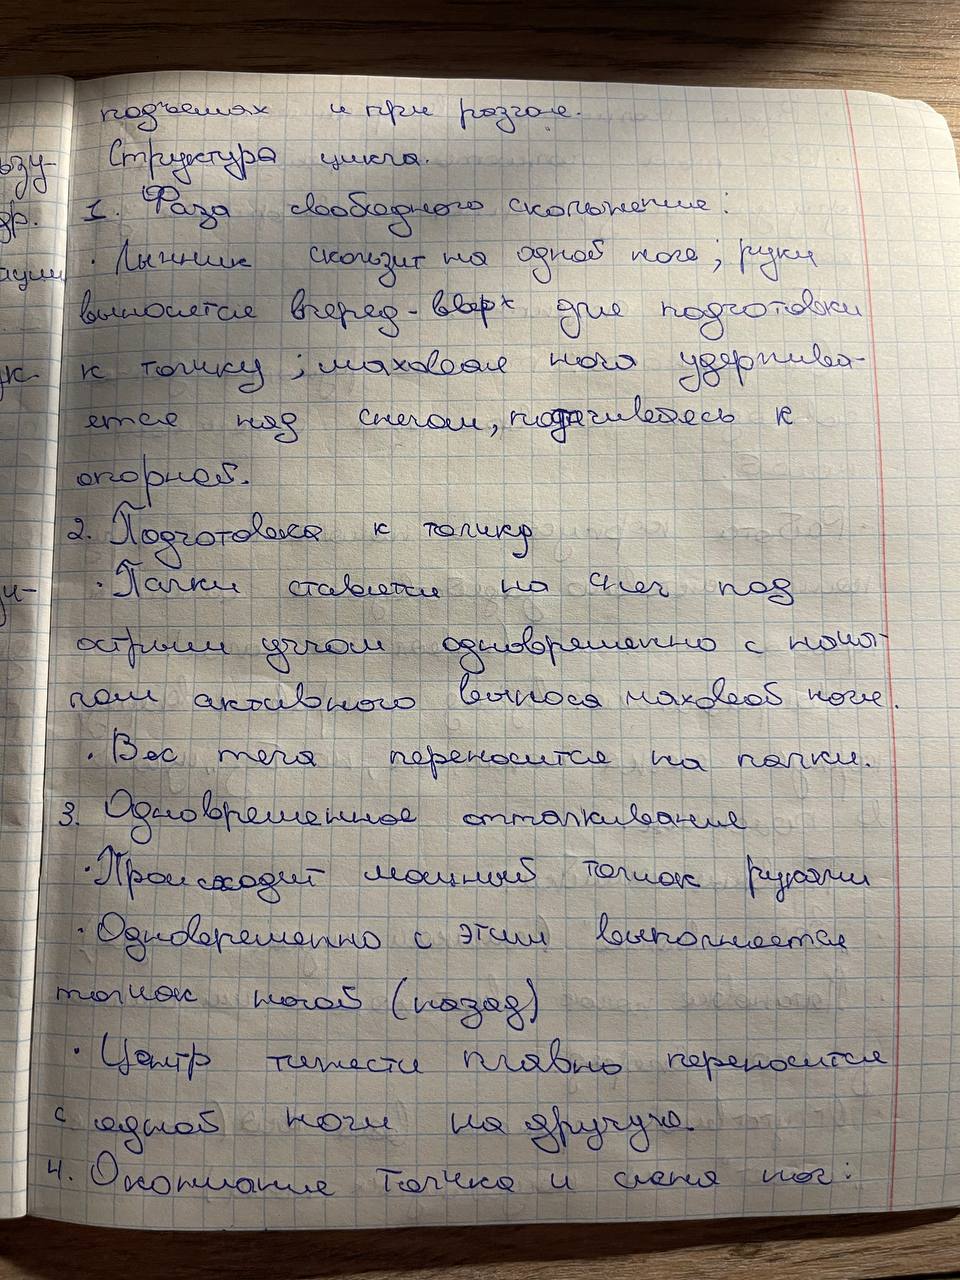 подъемах и при разгоне.
Структура цикла.
1. Фаза свободного скольжение:
· Лыжник скользит на одной ноге; руки
выносятся вперед-вверх для подготовки
к толчку; маховая нога удержива-
ется над снегом, подтягиваясь к
опорной.
2. Подготовка к толчку
· Палки ставятся на снег под
острым углом одновременно с нача-
лом активного выноса маховой ноги.
· Вес тела переносится на палки.
3. Одновременное отталкивание
· Происходит мощный толчок руками
· Одновременно с этим выполняется
толчок ногой (назад)
· Центр тяжести плавно переносится
с одной ноги на другую.
4. Окончание толчка и смена ног: